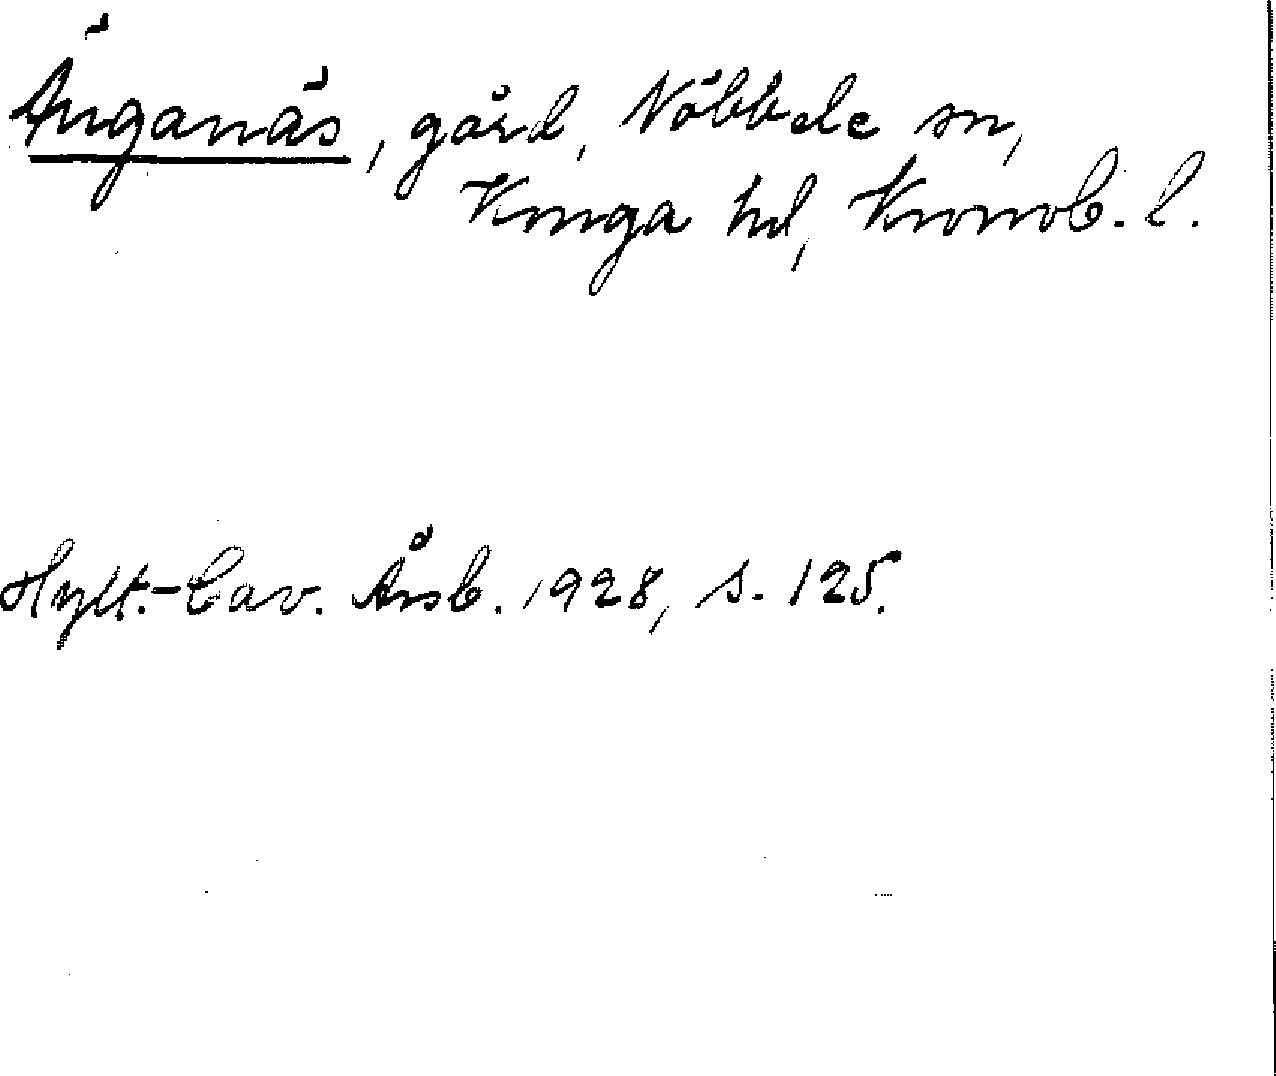 Änganäs, gård, Nöbbele sn,
Kinga hd, Kronob. l.
Hylt.-Cav. Årsb. 1928, s. 125.